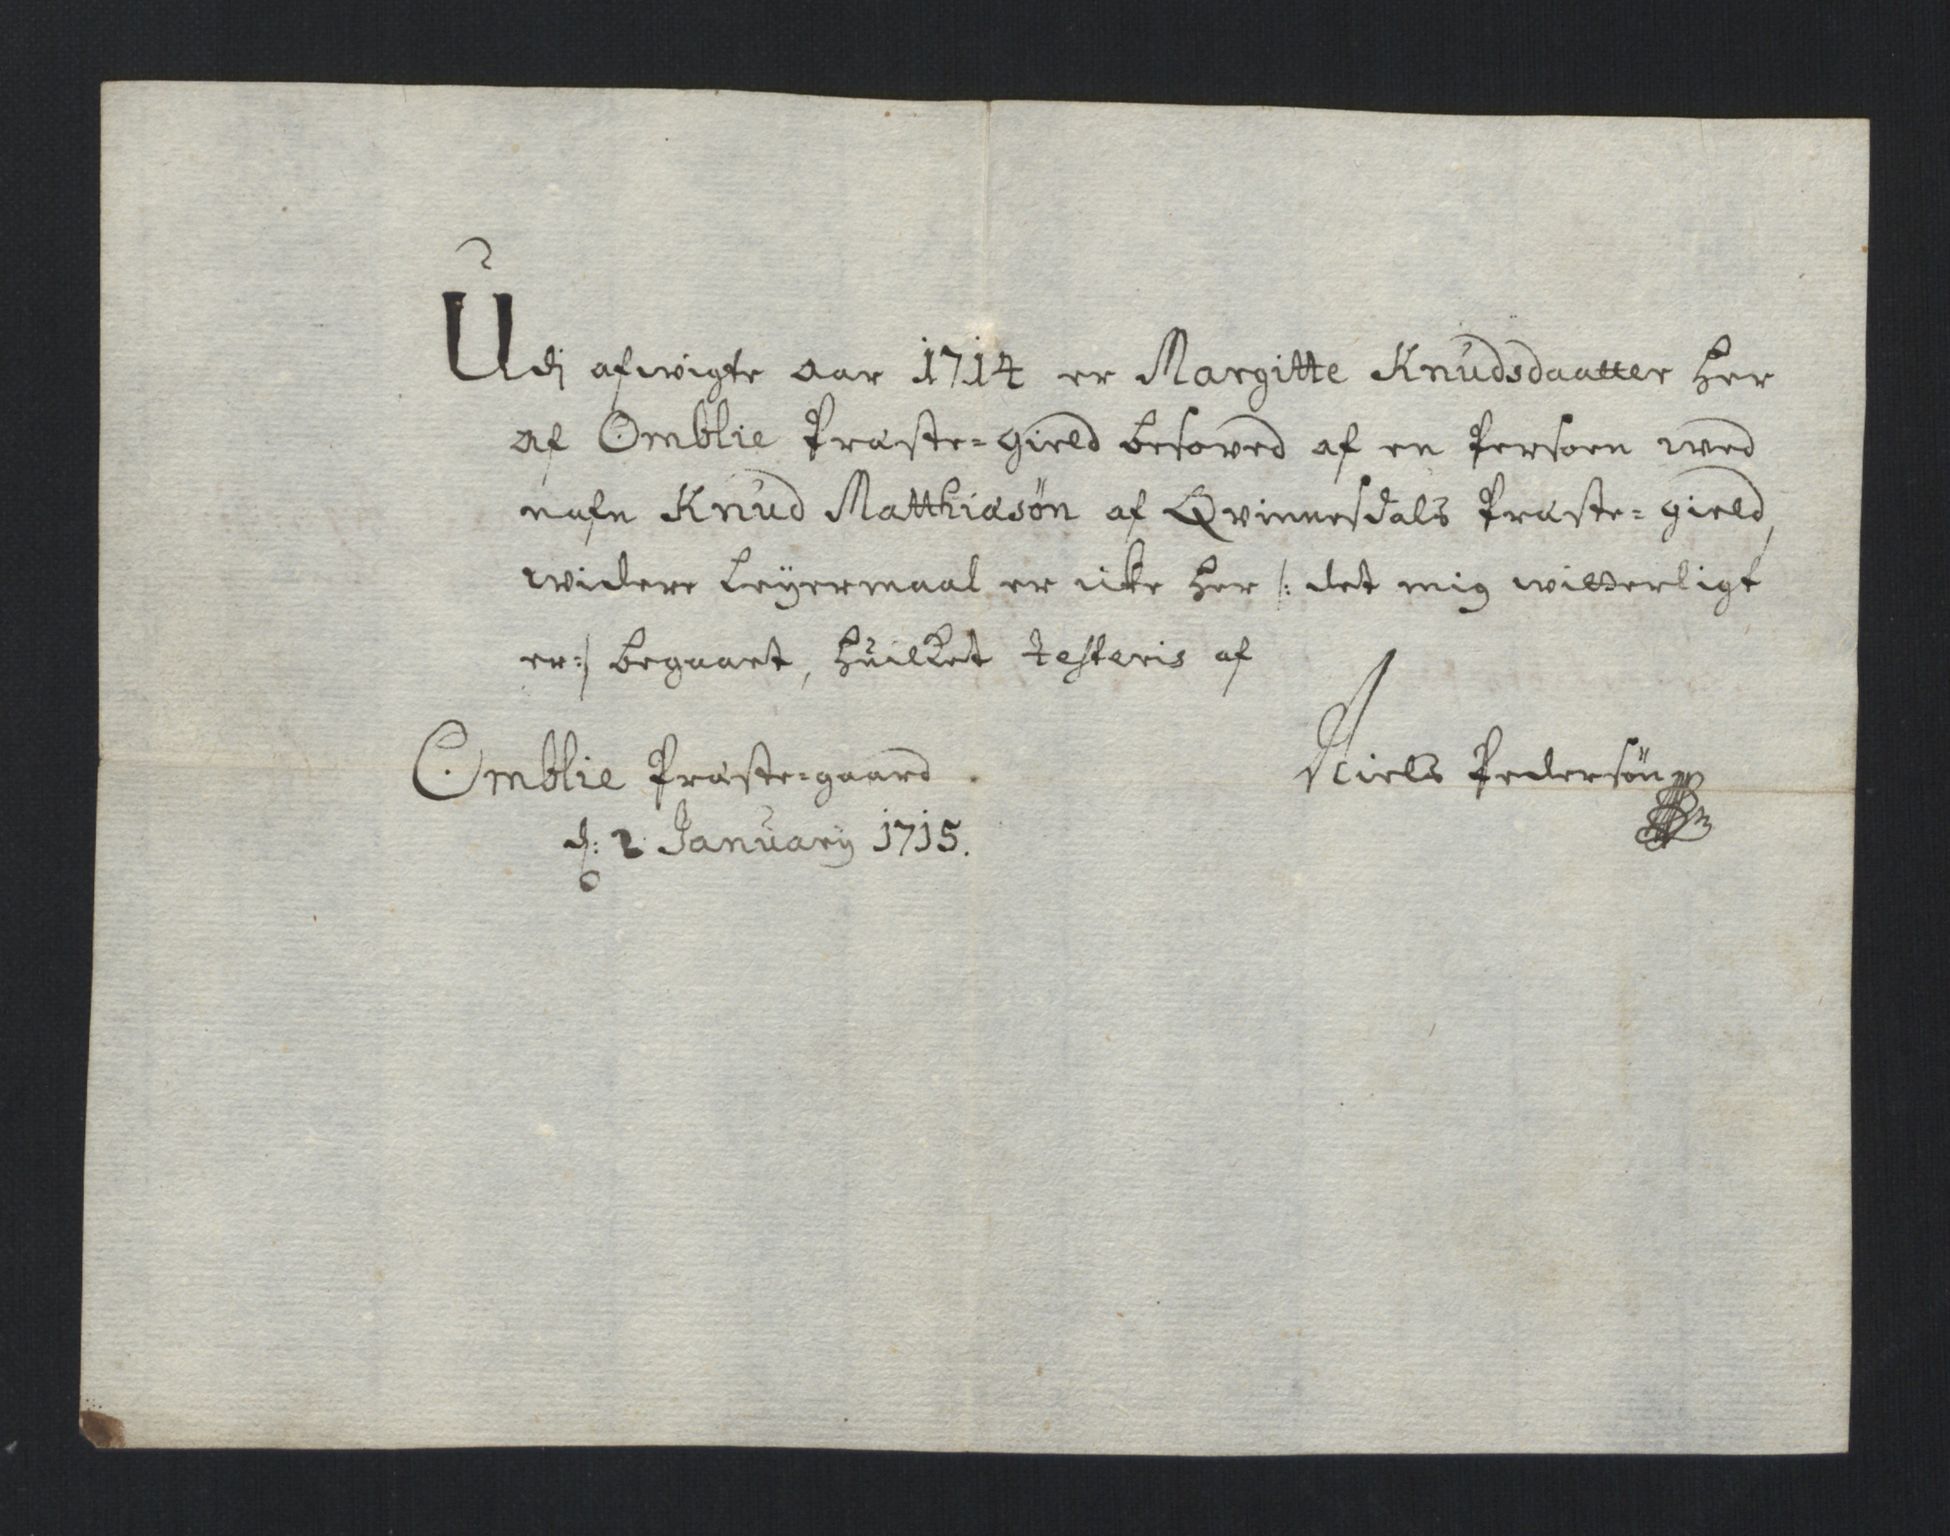 Udj afwigte aar 1714 er Margitte Knudsdaatter her
af Omblie Præste-gield besoved af en Persoen wed
nafn Knud Matthiasøn af Qvinnesdals Præste-gield,
widere Leyermaal er icke her /: det mig witterligt
er :/ begaaet, huilket testeris af
Omblie Præste-gaard. Niels Pedersøn
d: 2 January 1715.